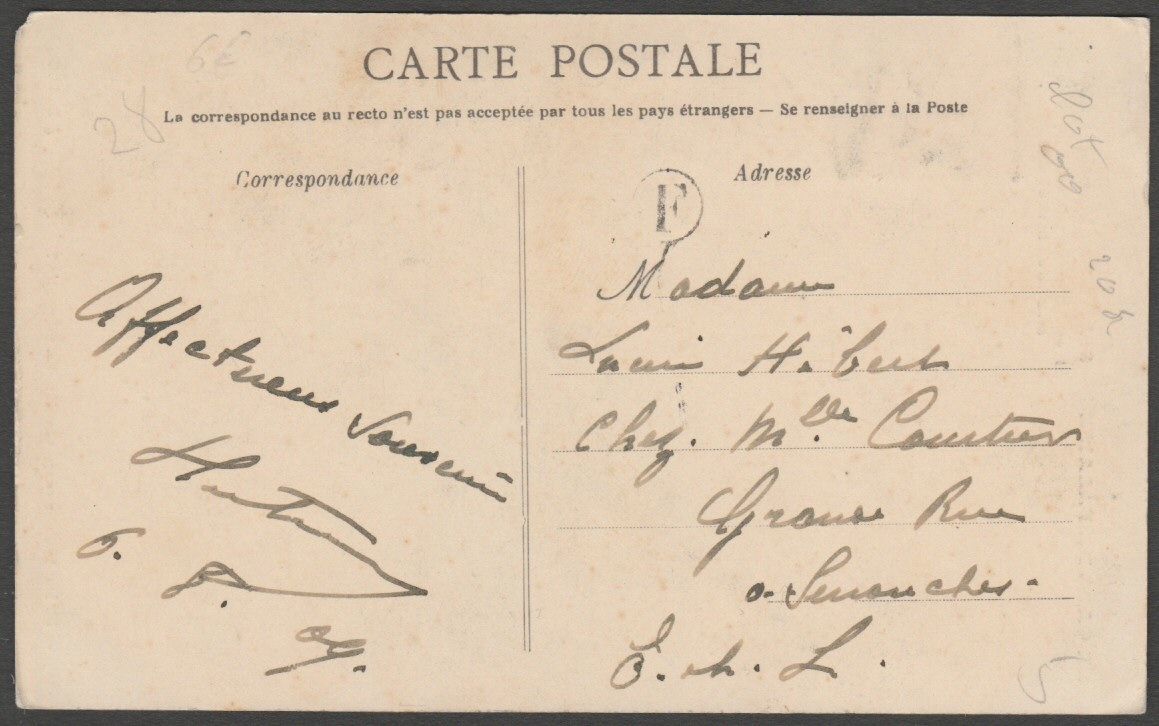 CARTE POSTALE
La correspondance au recto n'est pas acceptée par tous les pays étrangers — Se renseigner à la Poste
Correspondance
Adresse
F
Affectueux Souvenir
6. 8. 09.
Madame
Lucien Hébert
Chez. Mlle Courtier
Grande Rue
a. Senonches.
E. et. L.
28
6E
Lot
20